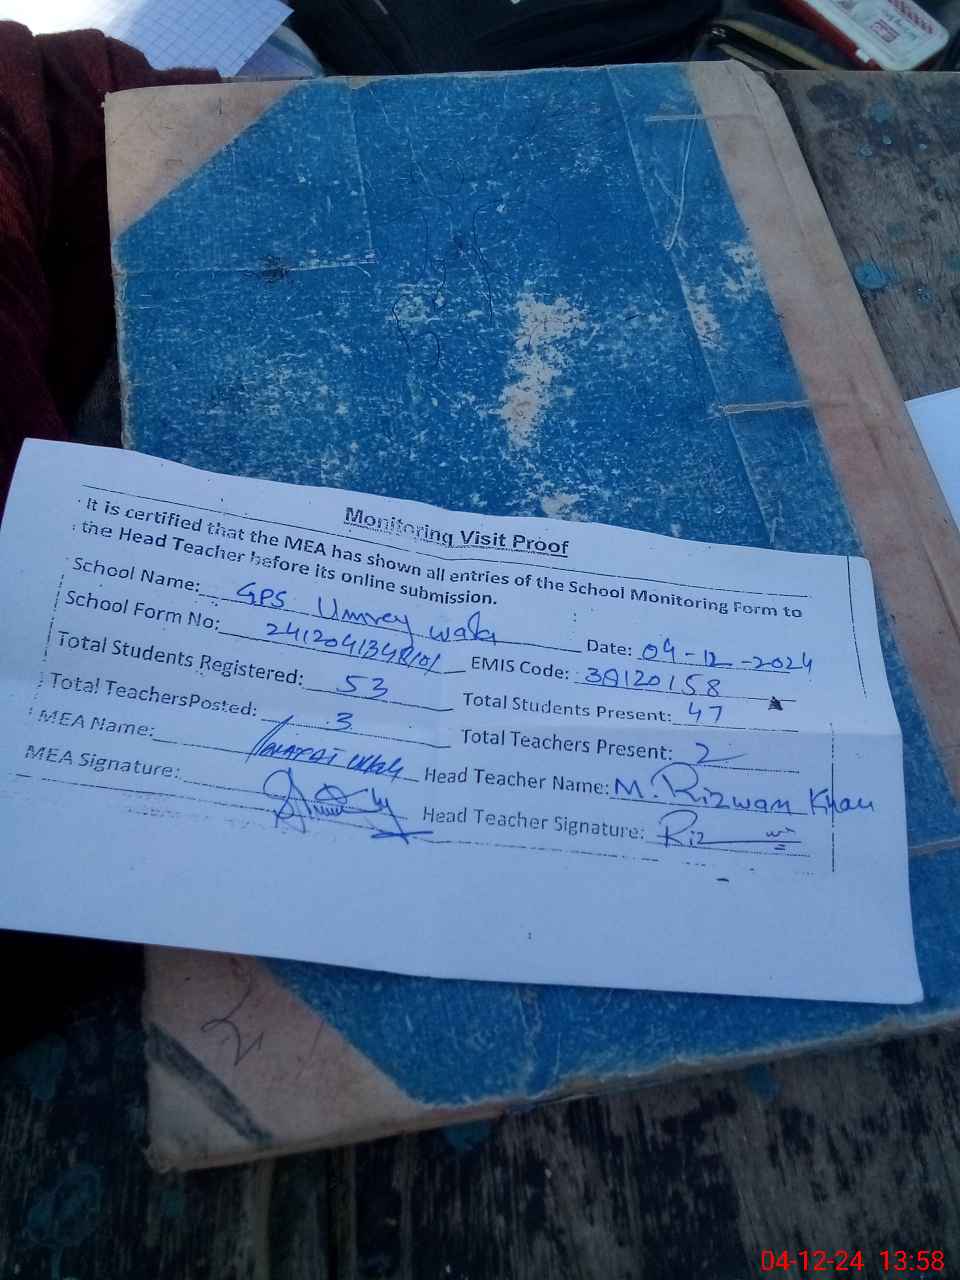 Monitoring Visit Proof
It is certified that the MEA has shown all entries of the School Monitoring Form to
the Head Teacher before its online submission.
School Name: GPS Umrey wala Date: 04-12-2024
School Form No: EMIS Code: 38120158
Total Students Registered: 53 Total Students Present: 47
Total TeachersPosted: 3 Total Teachers Present: 2
MEA Name: Head Teacher Name: M. Rizwan Khan
MEA Signature: Head Teacher Signature: Riz
04-12-24 13:58